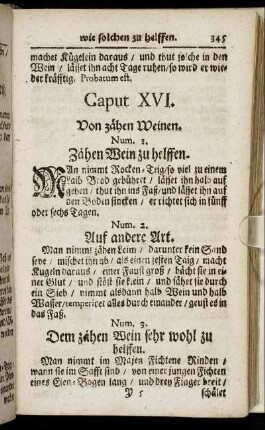 wie solchen zu helffen. 345
machet Kügelein daraus / und thut solche in den
Wein / lässet ihn acht Tage ruhen / so wird er wie-
der kräfftig. Probatum est.
Caput XVI.
Von zähen Weinen.
Num. 1.
Zähen Wein zu helffen.
MAn nimmt Rocken-Teig / so viel zu einem
Laib Brod gebühret / lässet ihn halb auf
gehen / thut ihn ins Faß / und lässet ihn auf
den Boden sincken / er richtet sich in fünff
oder sechs Tagen.
Num. 2.
Auf andere Art.
Man nimmt zähen Leim / darunter kein Sand
seye / mischet ihn ab / als einen festen Taig / macht
Kugeln daraus / einer Faust groß / bächt sie in ei-
ner Glut / und stöst sie klein / und fähet sie durch
ein Sieb / nimmt alsdann halb Wein und halb
Wasser / temperiret alles durch einander / geust es in
das Faß.
Num. 3.
Dem zähen Wein sehr wohl zu
helffen.
Man nimmt im Majen Fichtene Rinden /
wann sie im Safft sind / von einer jungen Fichten
eines Elen-Bogen lang / und drey Finger breit /
Y 5 schälet